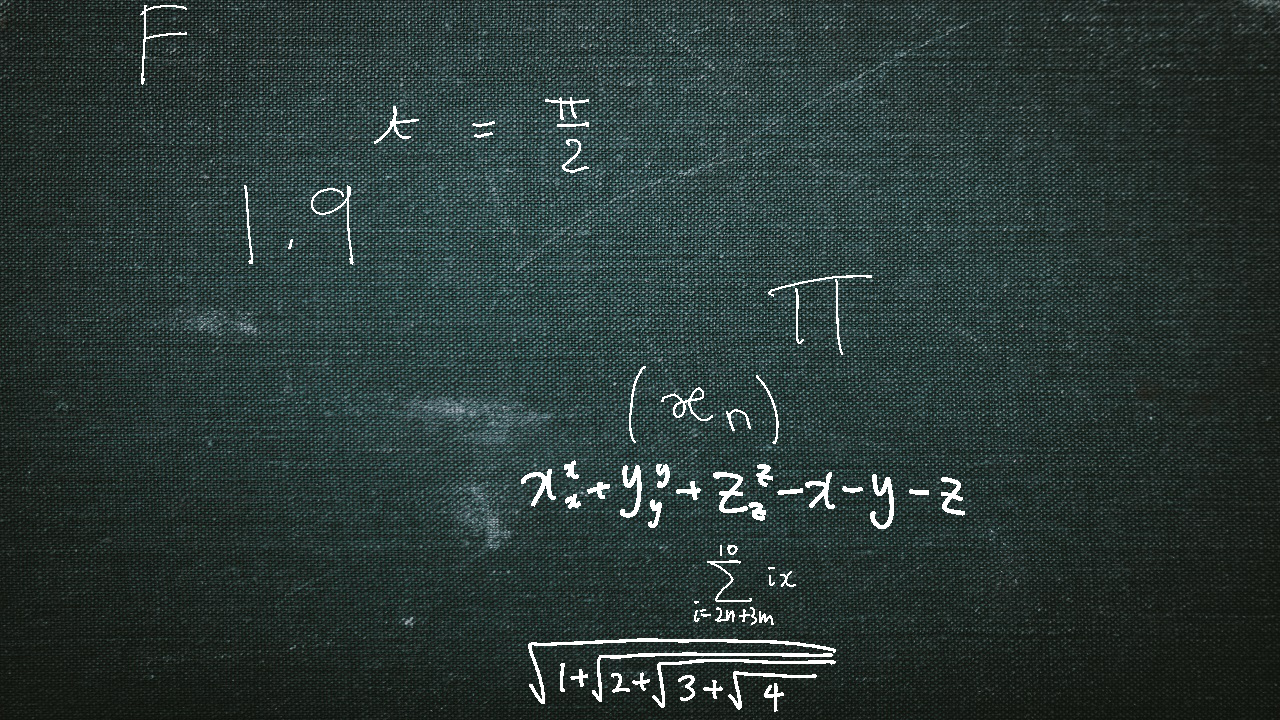 F
t = π/2
1.9
π
(x_n)
x_x^x + y_y^y + z_z^z - x - y - z
∑_{i=2n+3m}^{10} ix
√(1+√(2+√(3+√4)))